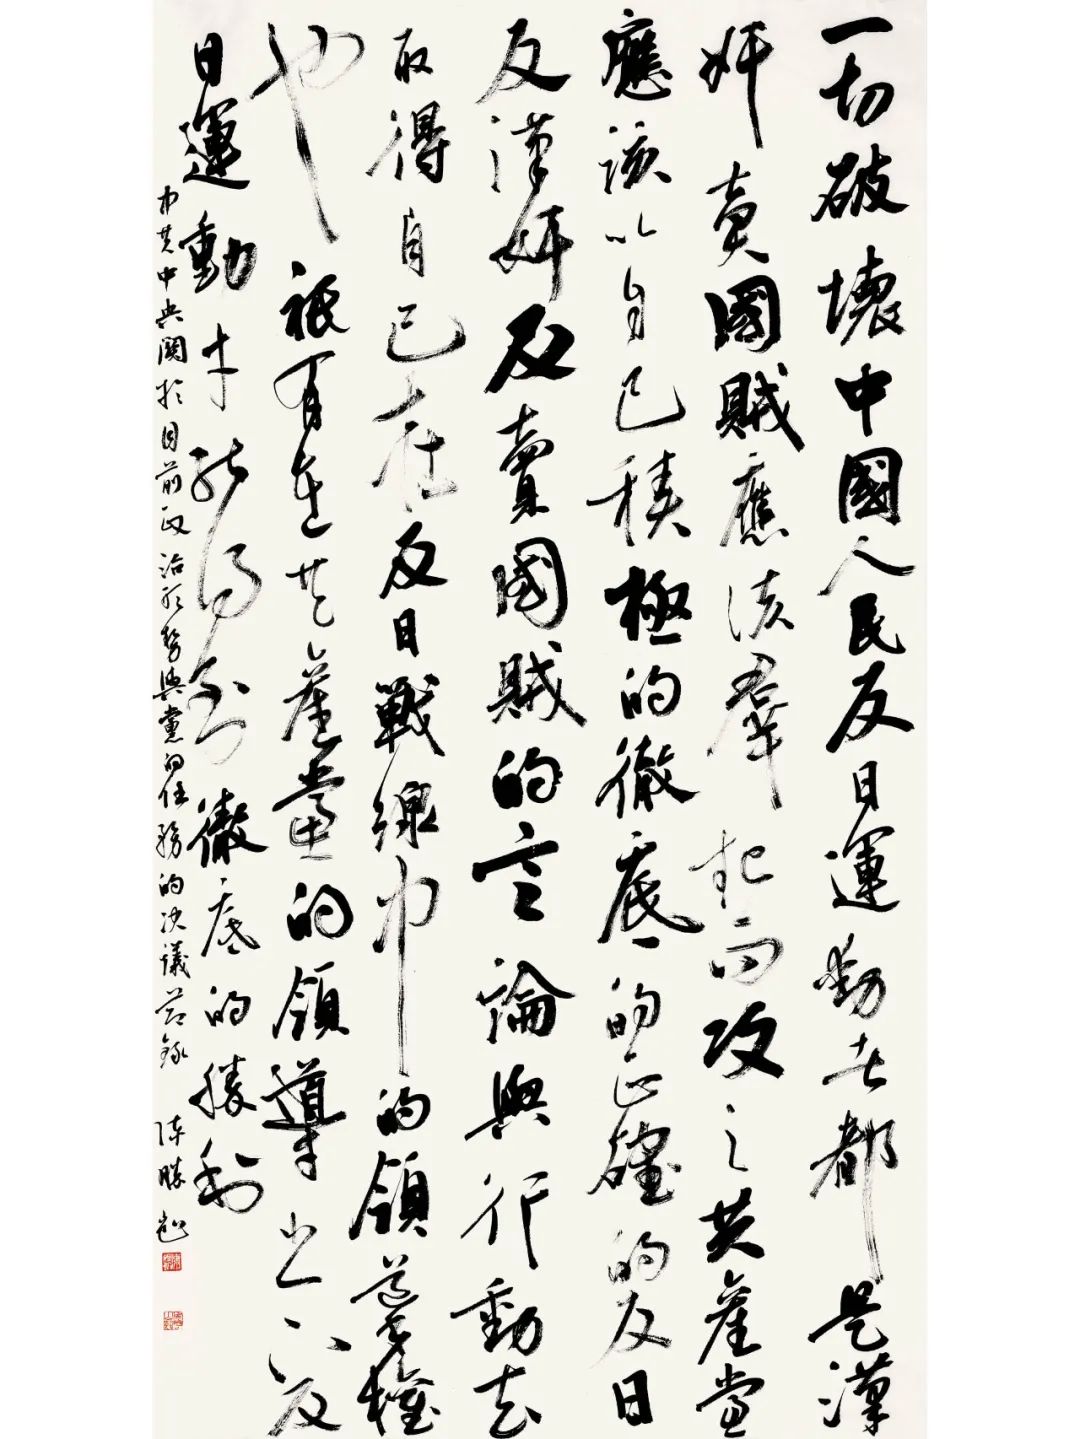 一切破壞中國人民反日運動者都是漢
奸賣國賊應該羣起而攻之共產黨
應該以自己積極的徹底的正確的反日
反漢奸反賣國賊的言論與行動去
取得自己在反日戰線中的領導權
也祇有在共產黨的領導之下反
日運動才能得到徹底的勝利
中共中央關於目前政治形勢與黨的任務的决議節錄 陳勝